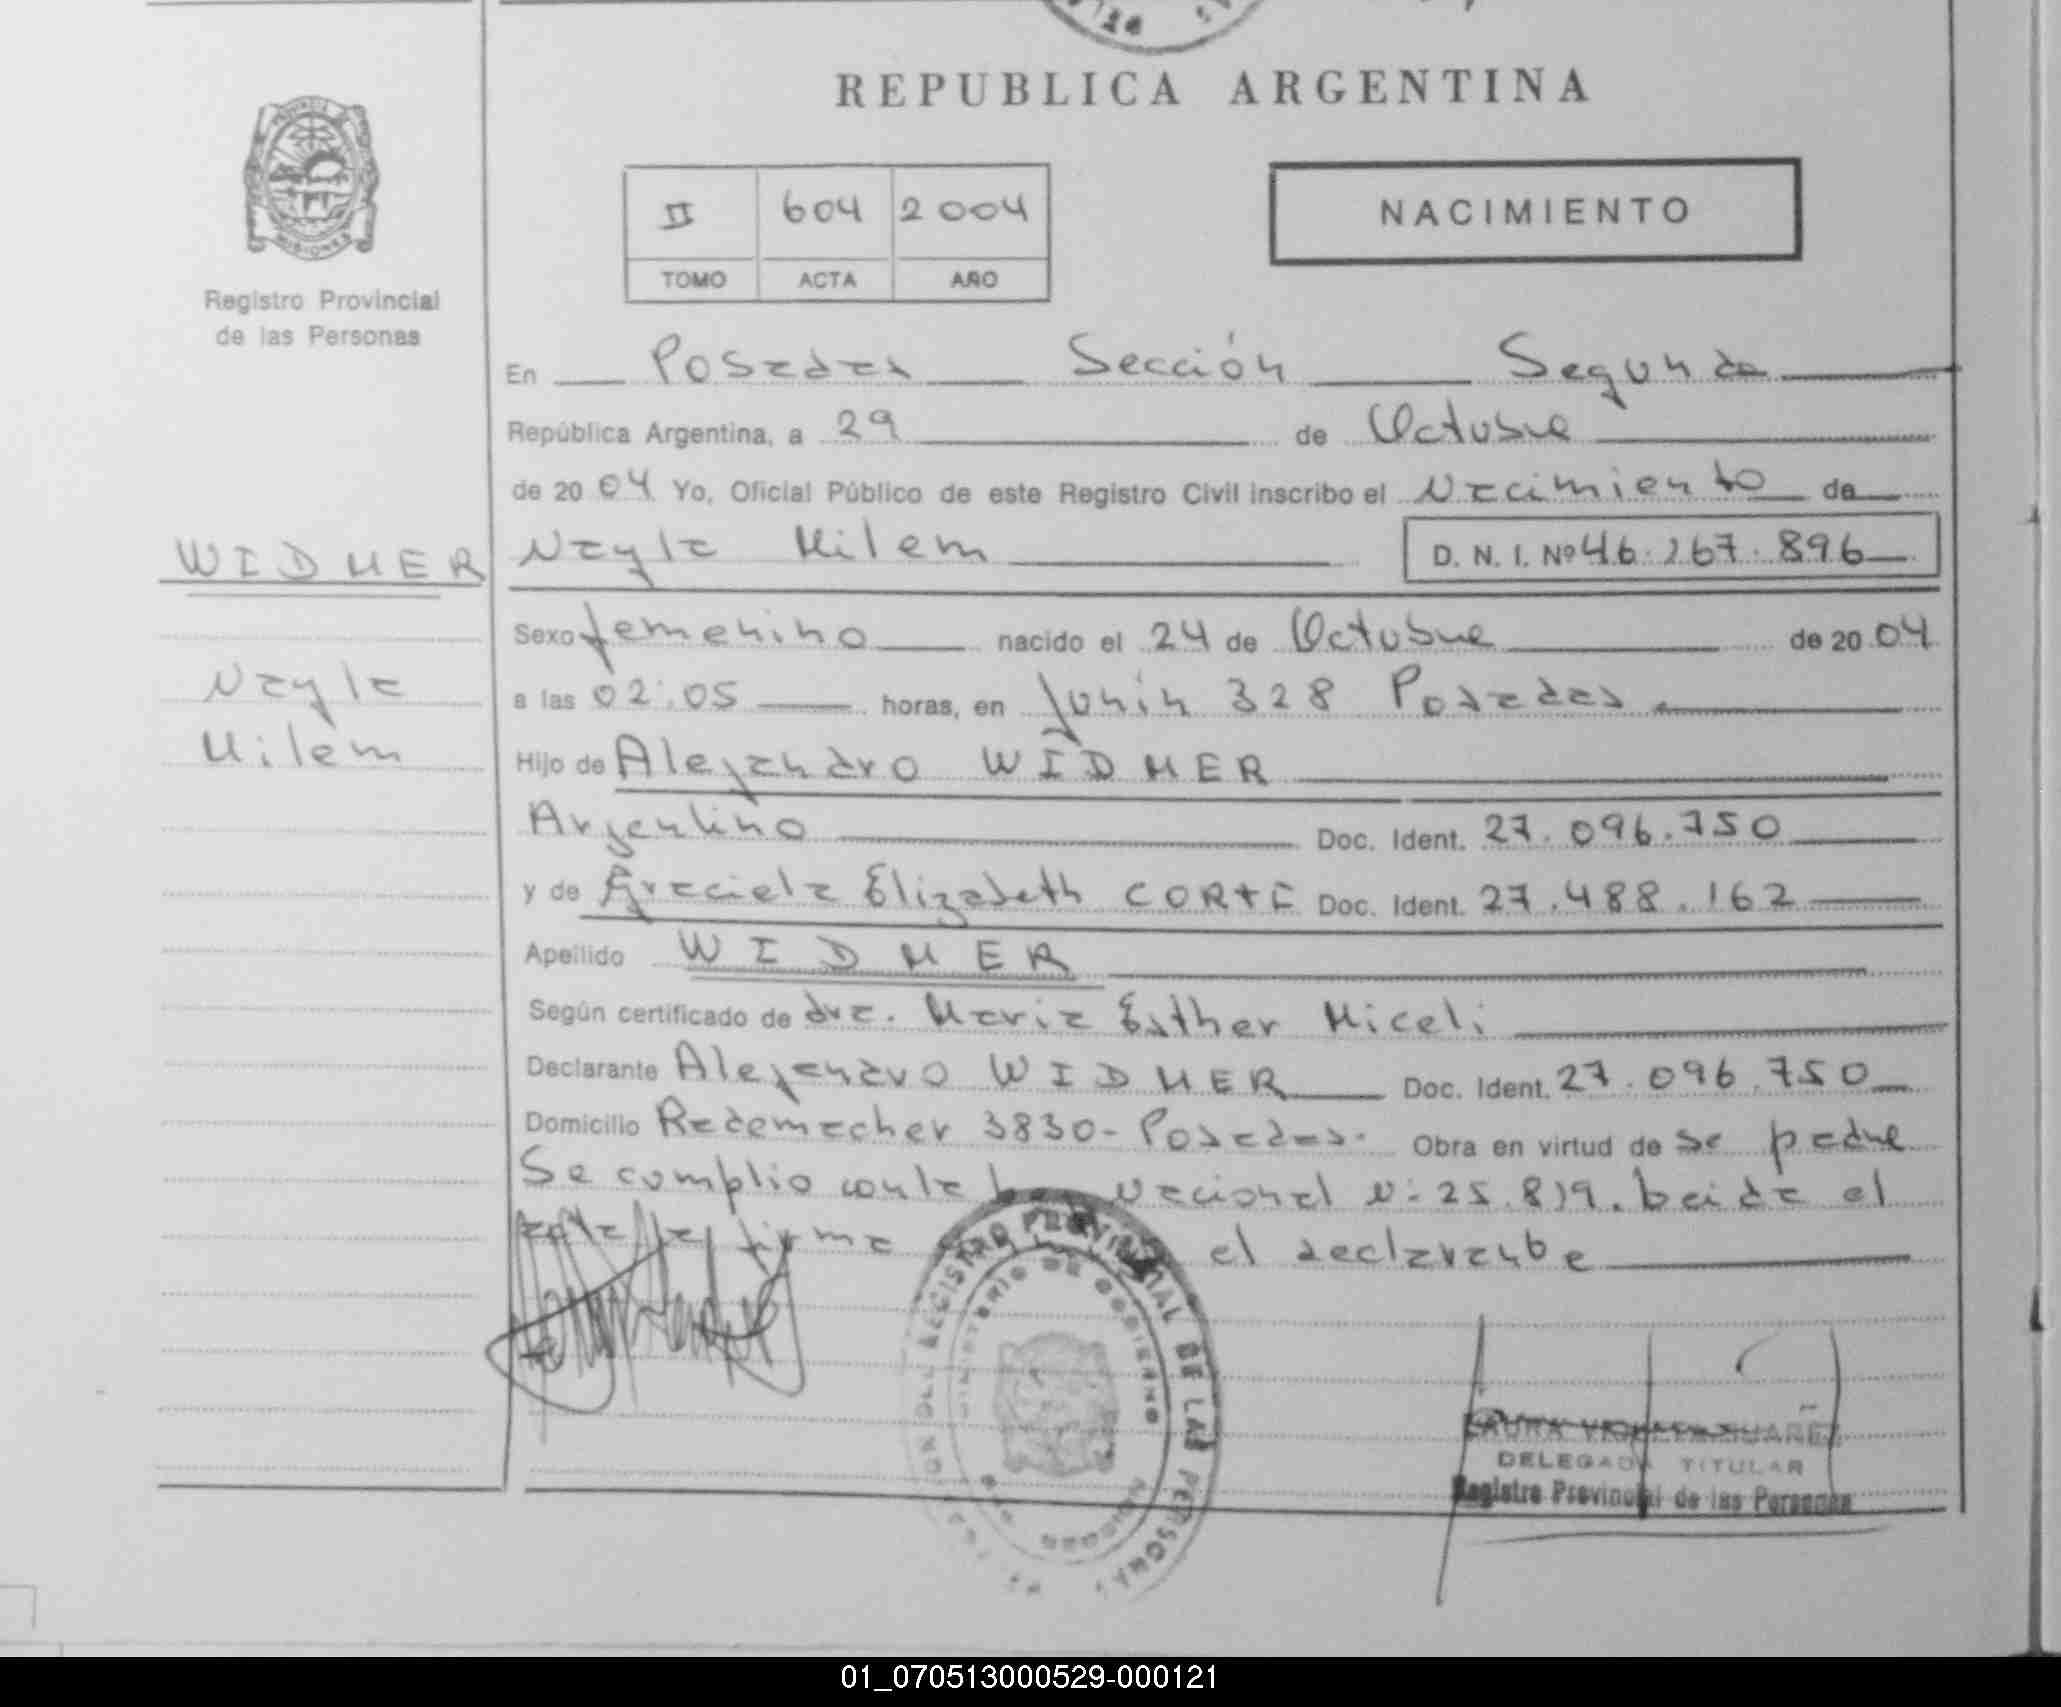 REPUBLICA ARGENTINA
PROVINCIA
MISIONES
Registro Provincial
de las Personas
II 604 2004
TOMO ACTA AÑO
NACIMIENTO
En Posadas Sección Segunda
República Argentina, a 29 de Octubre
de 2004 Yo, Oficial Público de este Registro Civil inscribo el Nacimiento de
WIDMER
Nayla
Milem
Nayla Milem D. N. I. Nº 46.267.896
Sexo femenino nacido el 24 de Octubre de 2004
a las 02:05 horas, en Junin 328 Posadas
Hijo de Alejandro WIDMER
Argentino Doc. Ident. 27.096.750
y de Graciela Elizabeth CORTE Doc. Ident. 27.488.162
Apellido WIDMER
Según certificado de dra. Maria Esther Miceli
Declarante Alejandro WIDMER Doc. Ident. 27.096.750
Domicilio Rademacher 3830- Posadas. Obra en virtud de se padre
Se cumplio con la Nacional N: 25.819. Leida el
acta la firma el declarante
REGISTRO PROVINCIAL DE LAS PERSONAS
MINISTERIO DE GOBIERNO
LAURA SUAREZ
DELEGADA TITULAR
Registro Provincial de las Personas
01_070513000529-000121